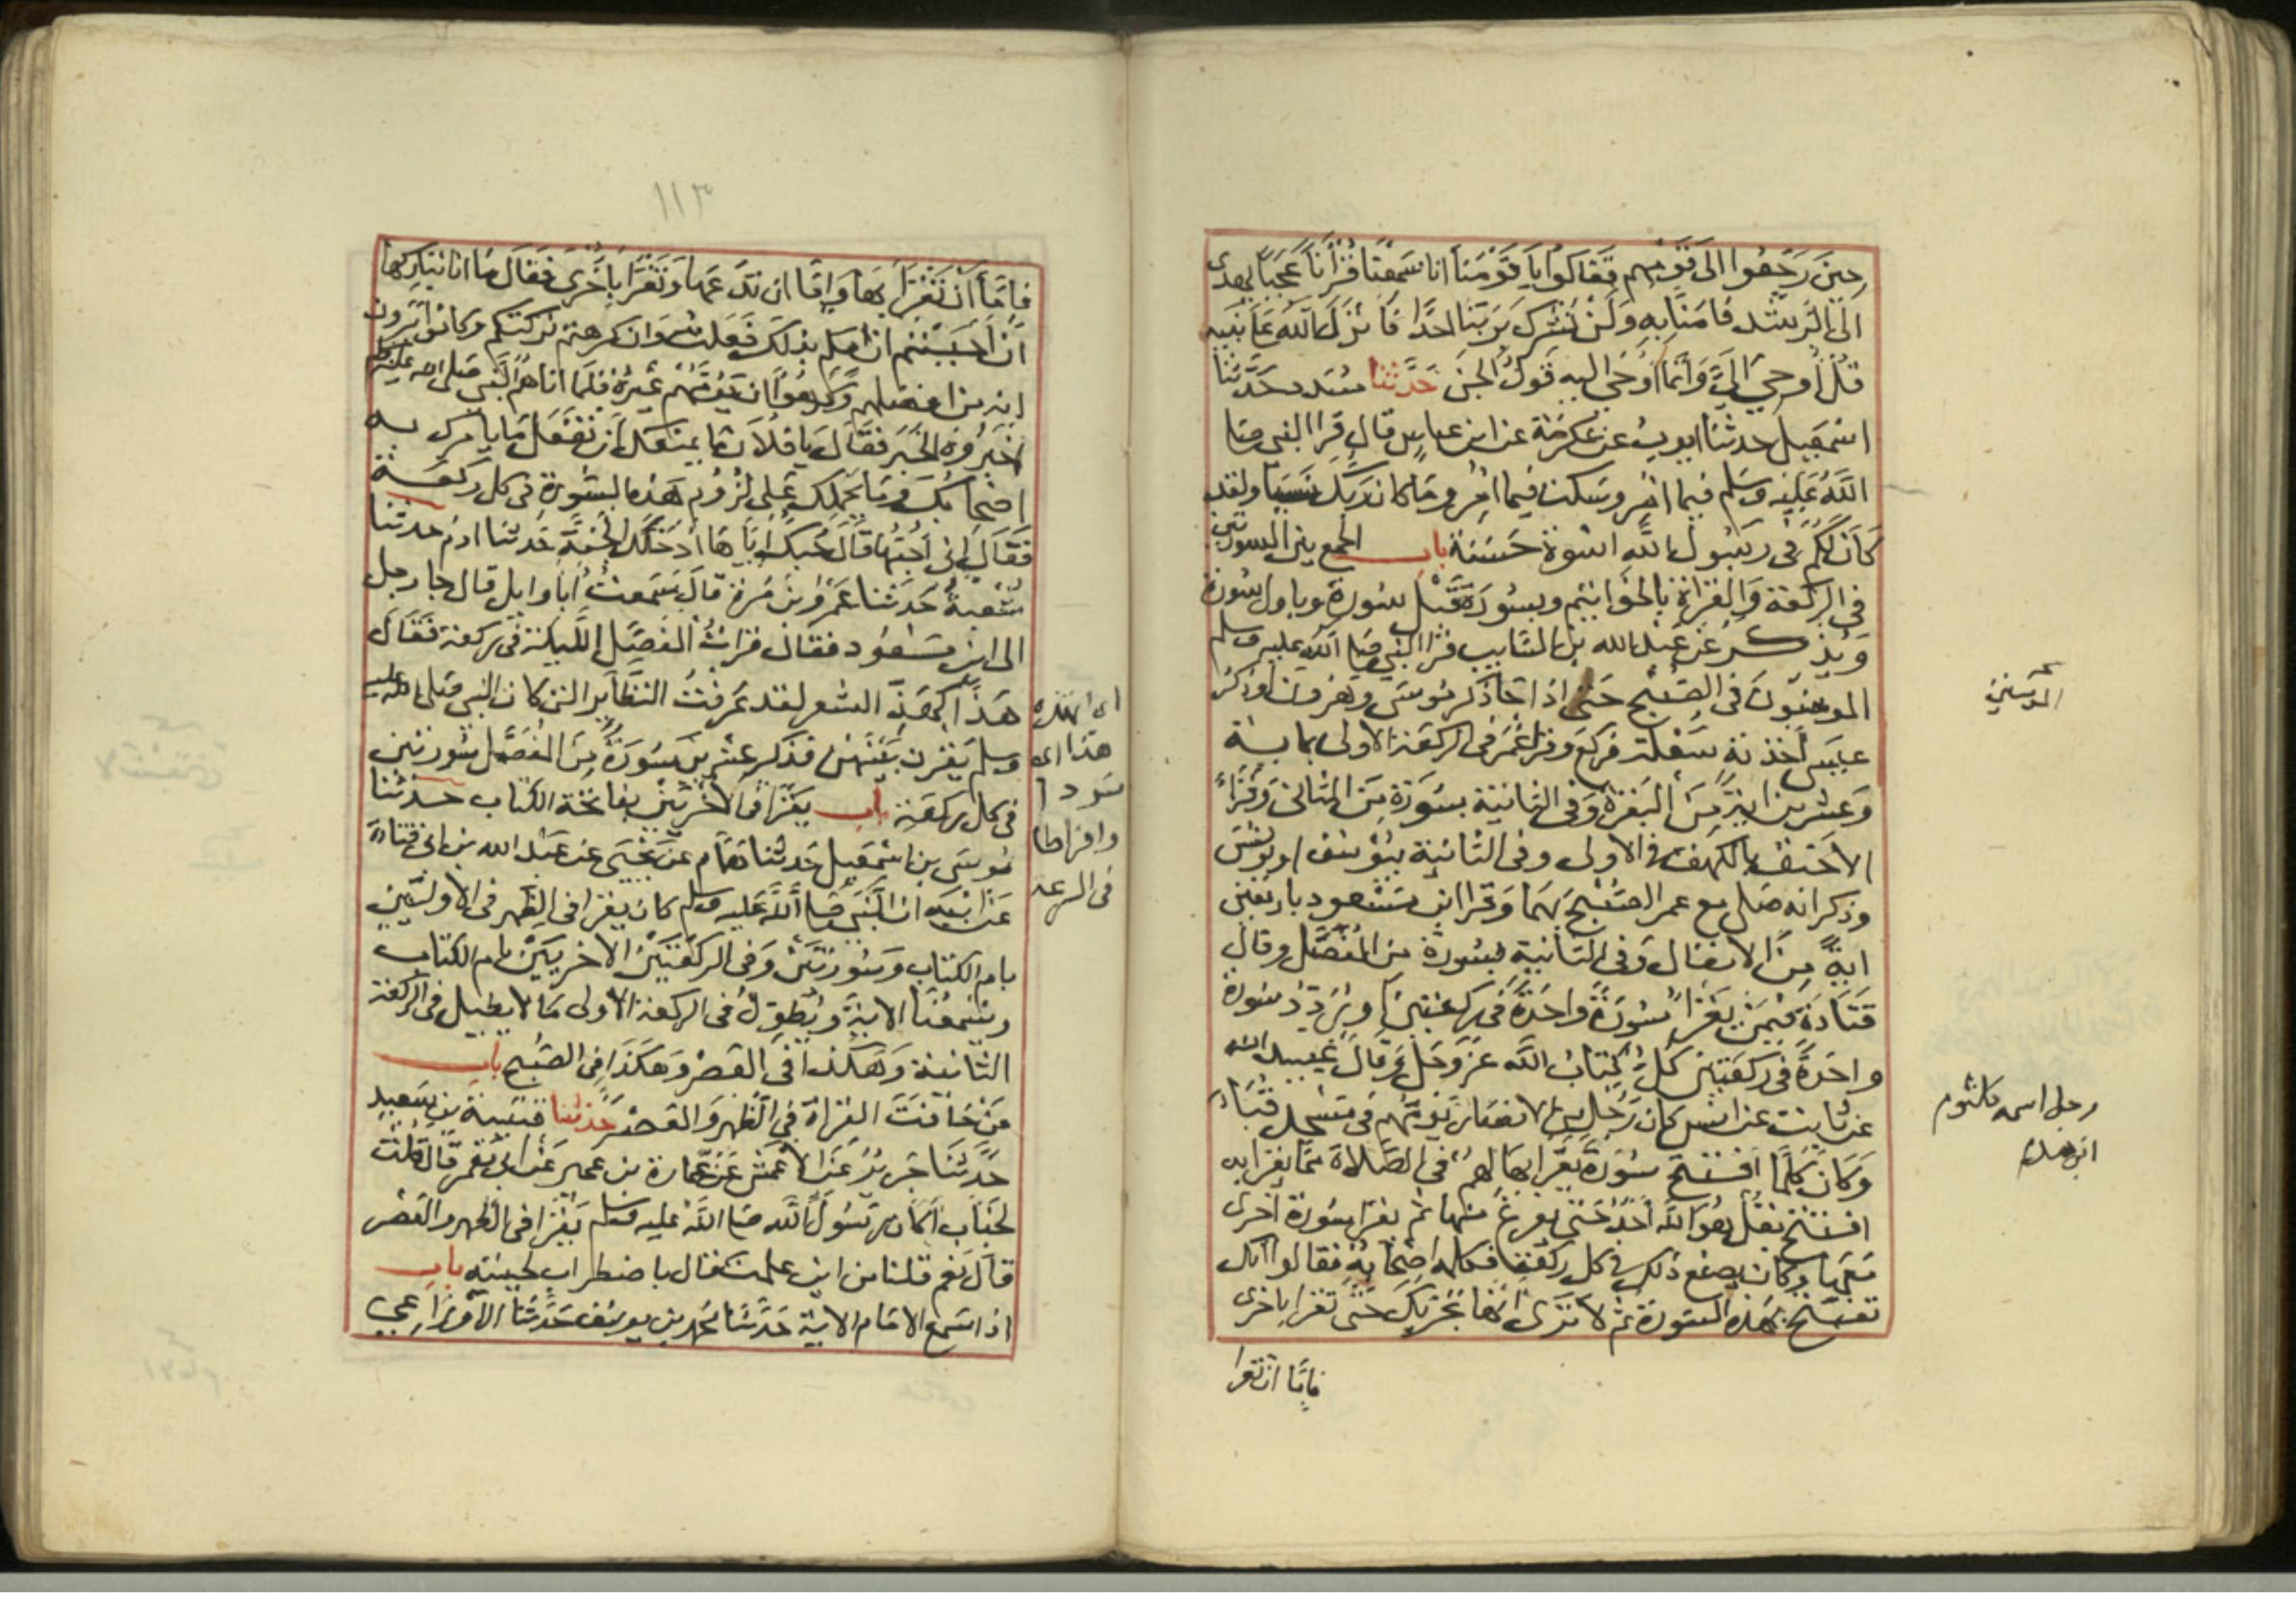 حين رجعوا الى قومهم فقالوا يا قومنا انا سمعنا قرانا عجبا يهدى
الى الرشد فامنا به ولن نشرك بربنا احدا فانزل الله على نبيه
قل اوحي الي وانما اوحى اليه قول الجن حدثنا مسدد حدثنا
اسمعيل حدثنا ايوب عن عكرمة عن ابن عباس قال قرا النبي صلى
الله عليه وسلم فيما امر وسكت فيما امر وما كان ربك نسيا ولقد
كان لكم في رسول الله اسوة حسنة باب الجمع بين السورتين
في الركعة والقراة بالخواتيم وبسورة قبل سورة وباول سورة
ويذكر عن عبد الله بن السايب قرا النبي صلى الله عليه وسلم
المومنون في الصبح حتى اذا جا ذكر موسى وهرون او ذكر
عيسى اخذته سعلة فركع وقرا عمر في الركعة الاولى بماية
وعشرين اية من البقرة وفي الثانية بسورة من المثاني وقرا
الاحنف بالكهف في الاولى وفي الثانية بيوسف او يونس
وذكر انه صلى مع عمر الصبح بهما وقرا ابن مسعود باربعين
اية من الانفال وفي الثانية بسورة من المفصل وقال
قتادة فيمن يقرا سورة واحدة في ركعتين او يردد سورة
واحدة في ركعتين كل كتاب الله عز وجل وقال عبيد الله
عن ثابت عن انس كان رجل من الانصار يومهم في مسجد قباء
وكان كلما افتتح سورة يقرا بها لهم في الصلاة مما يقرا به
افتتح بقل هو الله احد حتى يفرغ منها ثم يقرا سورة اخرى
معها وكان يصنع ذلك في كل ركعة فكلمه اصحابه فقالوا انك
تفتتح بهذه السورة ثم لا ترى انها تجزيك حتى تقرا باخرى
فاما ان تقرا
المومنين
رجل اسمه كلثوم
ابن هدم
١١٣
فاما ان تقرا بها واما ان تدعها وتقرا باخرى فقال ما انا بتاركها
ان احببتم ان اومكم بذلك فعلت وان كرهتم تركتكم وكانوا يرون
انه من افضلهم وكرهوا ان يومهم غيره فلما اتاهم النبي صلى الله عليه وسلم
اخبروه الخبر فقال يا فلان ما يمنعك ان تفعل ما يامرك به
اصحابك وما يحملك على لزوم هذه السورة في كل ركعة
فقال اني احبها قال حبك اياها ادخلك الجنة حدثنا ادم حدثنا
شعبة حدثنا عمرو بن مرة قال سمعت ابا وايل قال جا رجل
الى ابن مسعود فقال قرات المفصل الليلة في ركعة فقال
هذا كهذ الشعر لقد عرفت النظاير التي كان النبي صلى الله عليه
وسلم يقرن بينهن فذكر عشرين سورة من المفصل سورتين
في كل ركعة باب يقرا في الاخريين بفاتحة الكتاب حدثنا
موسى بن اسمعيل حدثنا همام عن يحيى عن عبد الله بن ابي قتادة
عن ابيه ان النبي صلى الله عليه وسلم كان يقرا في الظهر في الاوليين
بام الكتاب وسورتين وفي الركعتين الاخريين بام الكتاب
ويسمعنا الاية ويطول في الركعة الاولى ما لا يطيل في الركعة
الثانية وهكذا في العصر وهكذا في الصبح باب
من خافت القراة في الظهر والعصر حدثنا قتيبة بن سعيد
حدثنا جرير عن الاعمش عن عمارة بن عمير عن ابي معمر قال قلت
لخباب اكان رسول الله صلى الله عليه وسلم يقرا في الظهر والعصر
قال نعم قلنا من اين علمت قال باضطراب لحيته باب
اذا اسمع الامام الاية حدثنا محمد بن يوسف حدثنا الاوزاعي
هذا اى
سردا
وافراطا
في السرعة